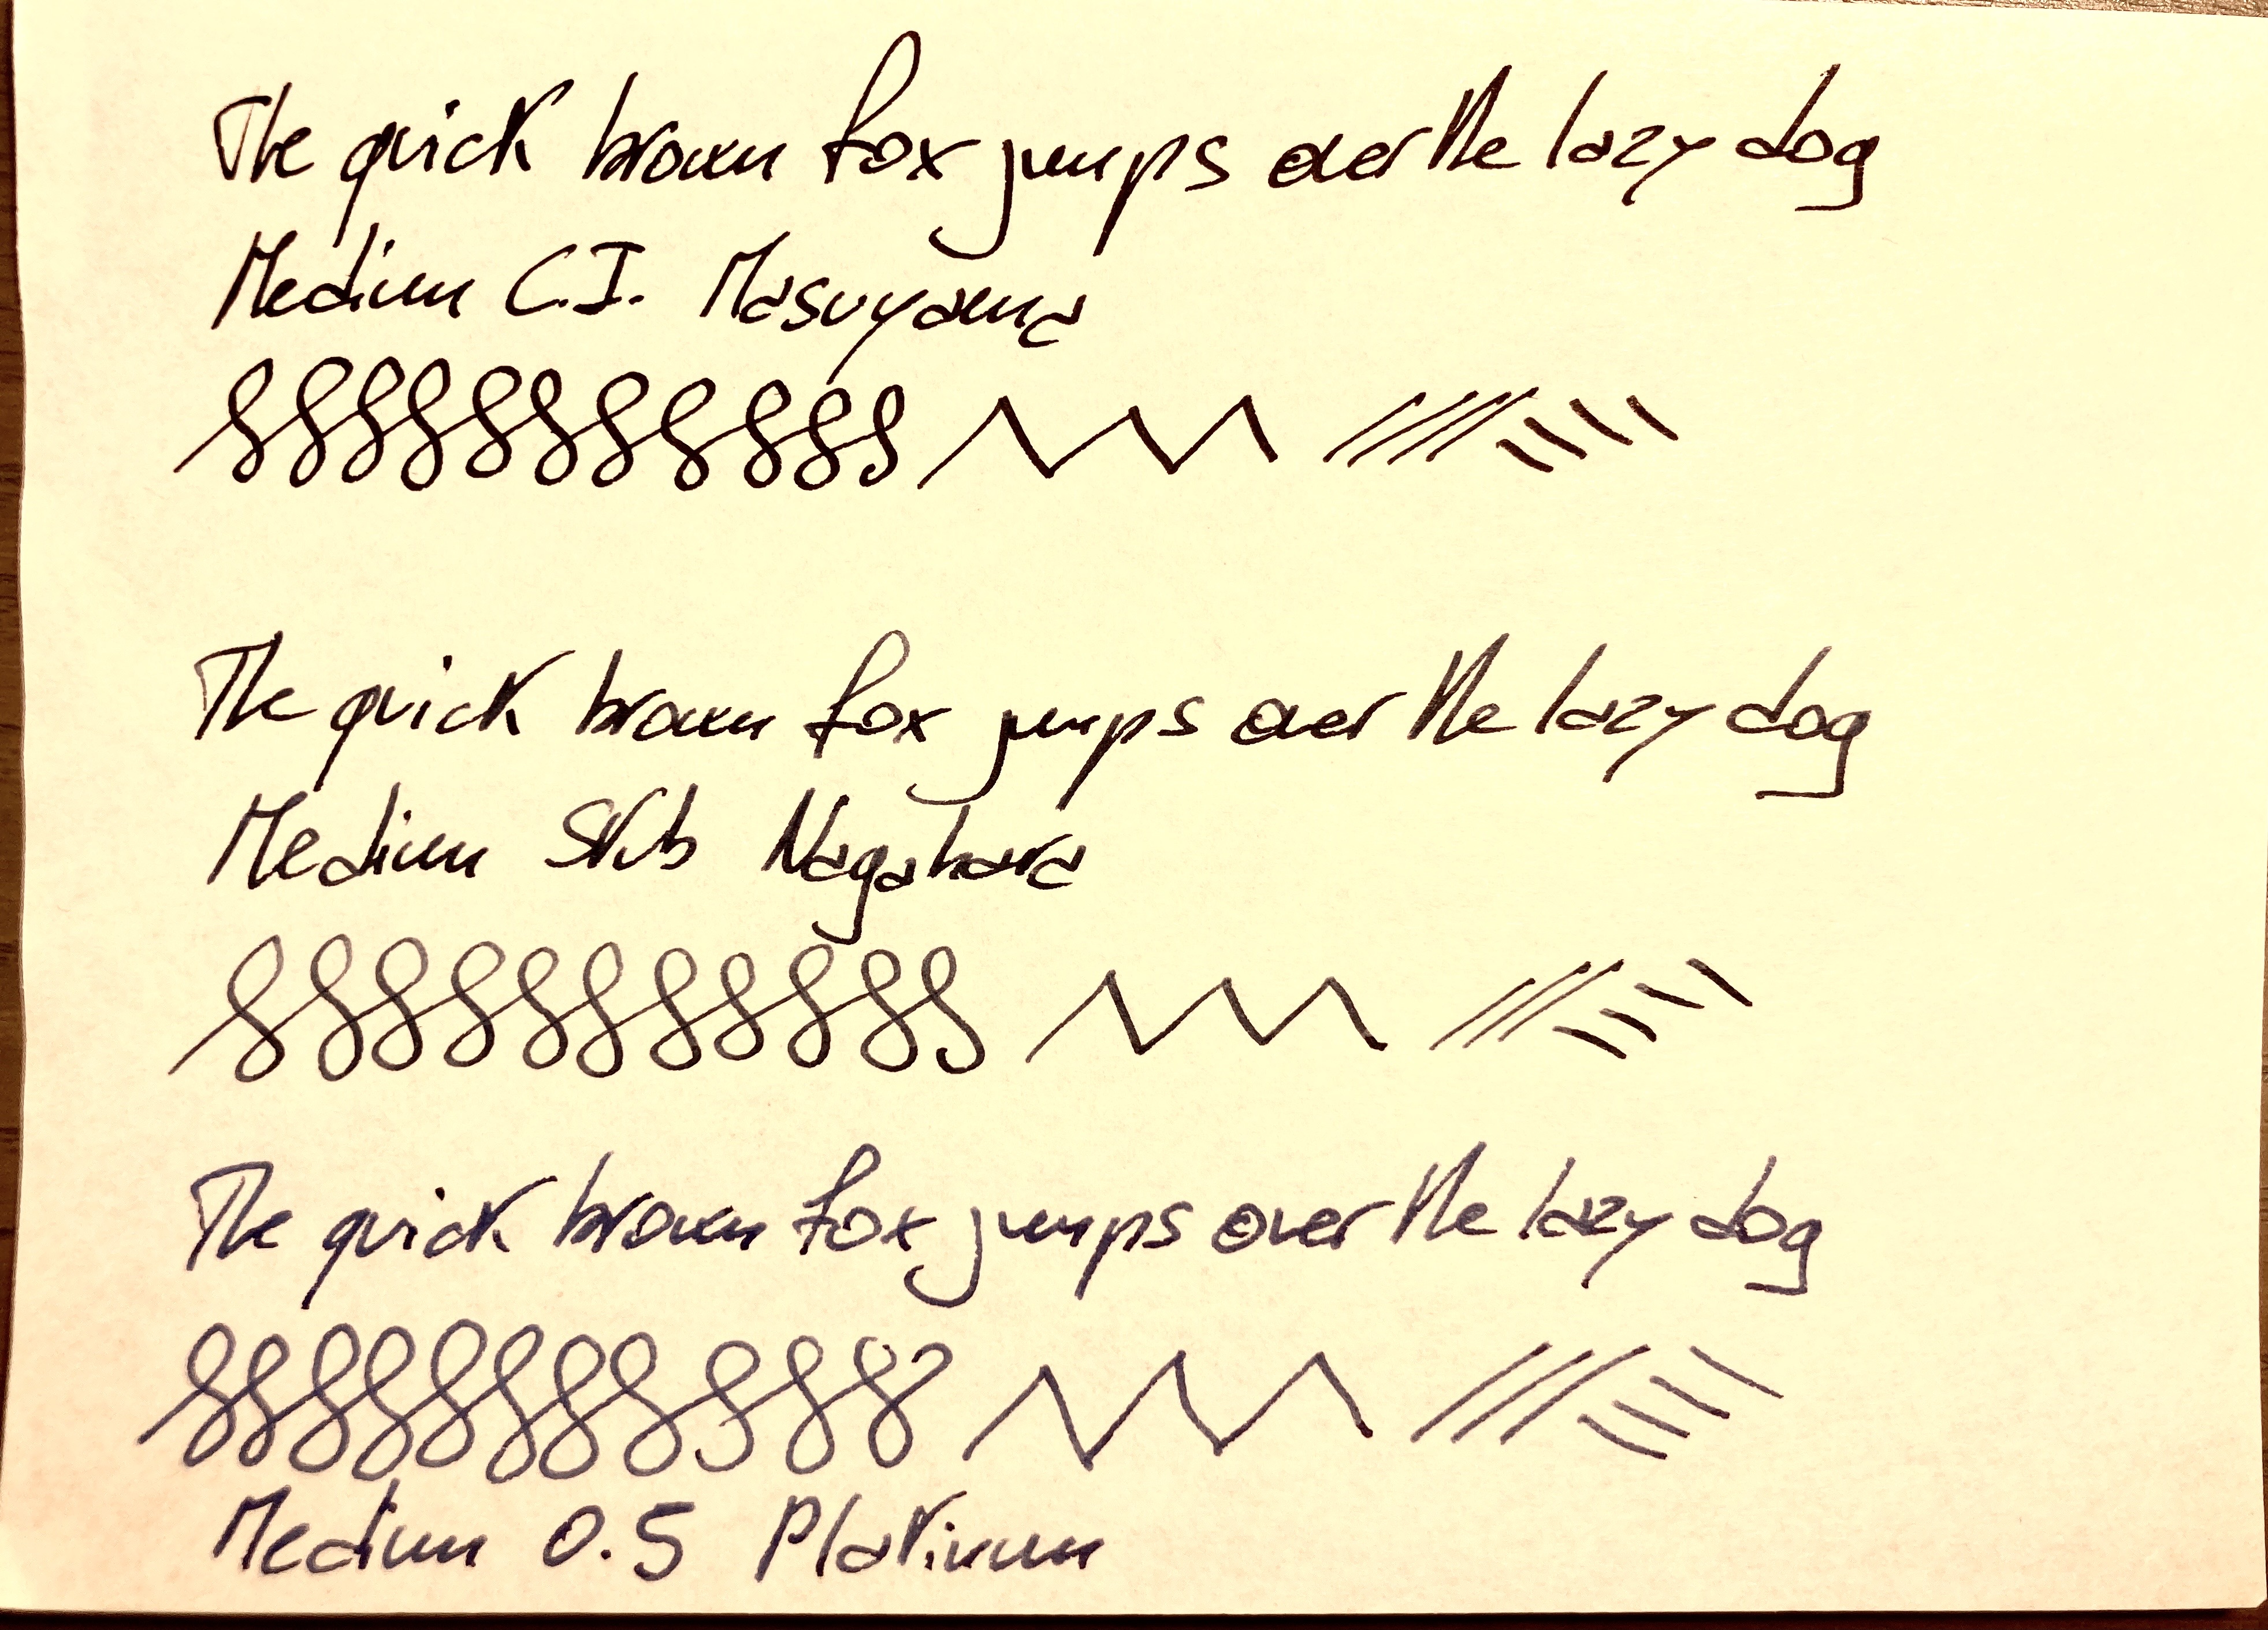 The quick brown fox jumps over the lazy dog
Medium C.I. Masuyama
The quick brown fox jumps over the lazy dog
Medium Stub Nagahara
The quick brown fox jumps over the lazy dog
Medium 0.5 Platinum